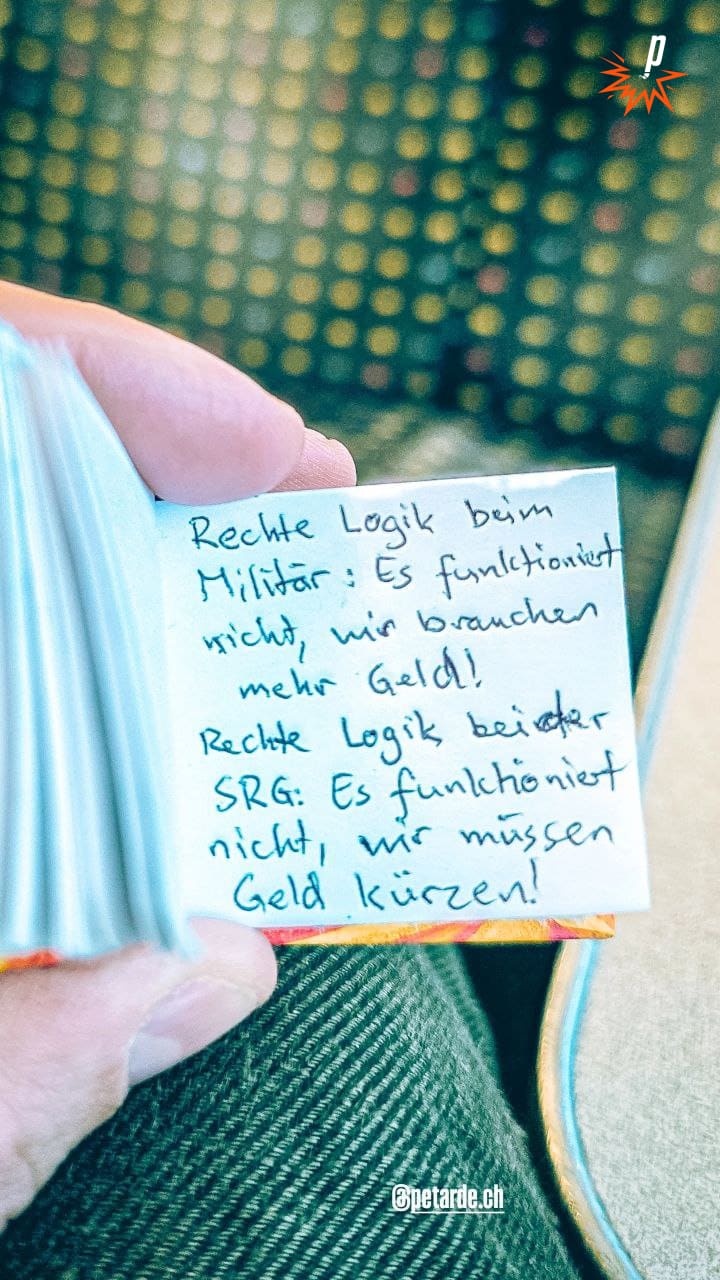 p
Rechte Logik beim
Militär: Es funktioniert
nicht, wir brauchen
mehr Geld!
Rechte Logik bei der
SRG: Es funktioniert
nicht, wir müssen
Geld kürzen!
@petarde.ch